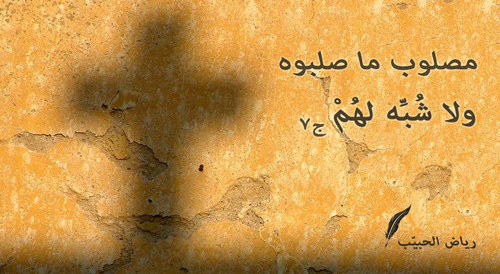 مصلوب ما صلبوه
ولا شُبِّه لهُمْ ج٧
رياض الحبيّب